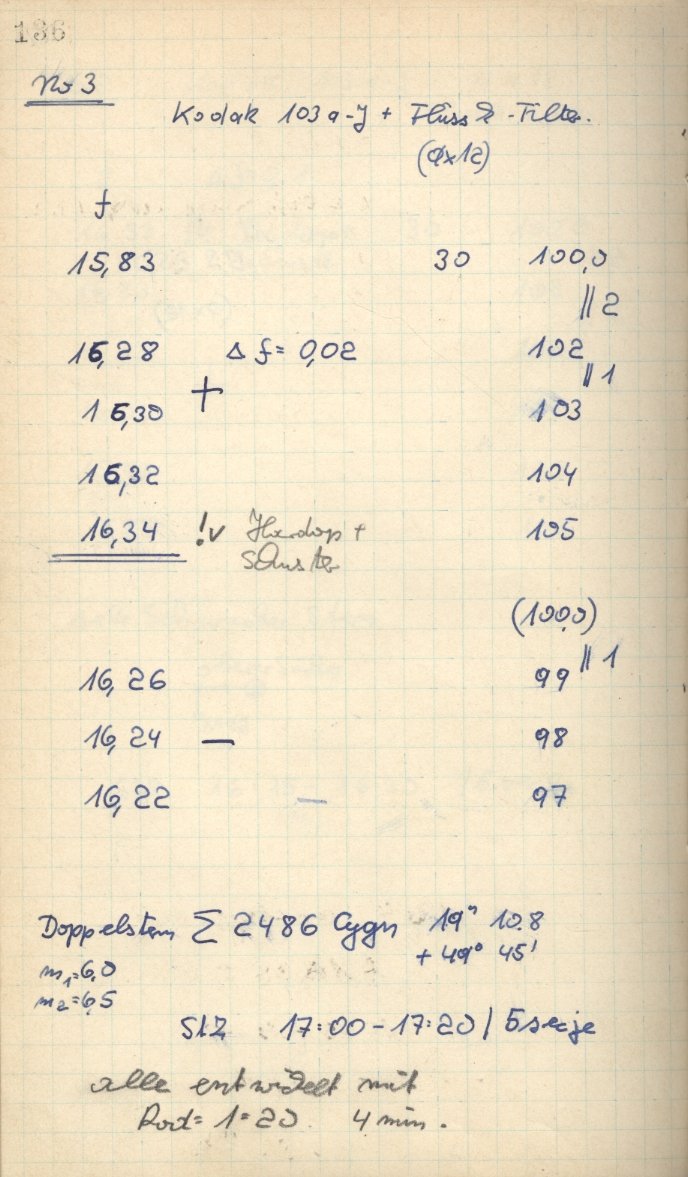 136
No 3
Kodak 103 a-J + Flüss -Filter.
(9x12)
f
15,83 30 100,0
|| 2
16,28 Δ f = 0,02 102
|| 1
16,30 + 103
16,32 104
16,34 !v Hardop +
Schuster 105
(100,0)
|| 1
16,26 99
16,24 — 98
16,22 — 97
Doppelstern Σ 2486 Cygn 19ʰ 10.8
+ 49° 45'
m₁=6,0
m₂=6,5
StZ 17:00 - 17:20 / 5 sec je
alle entwickelt mit
Rod= 1:20. 4 min.